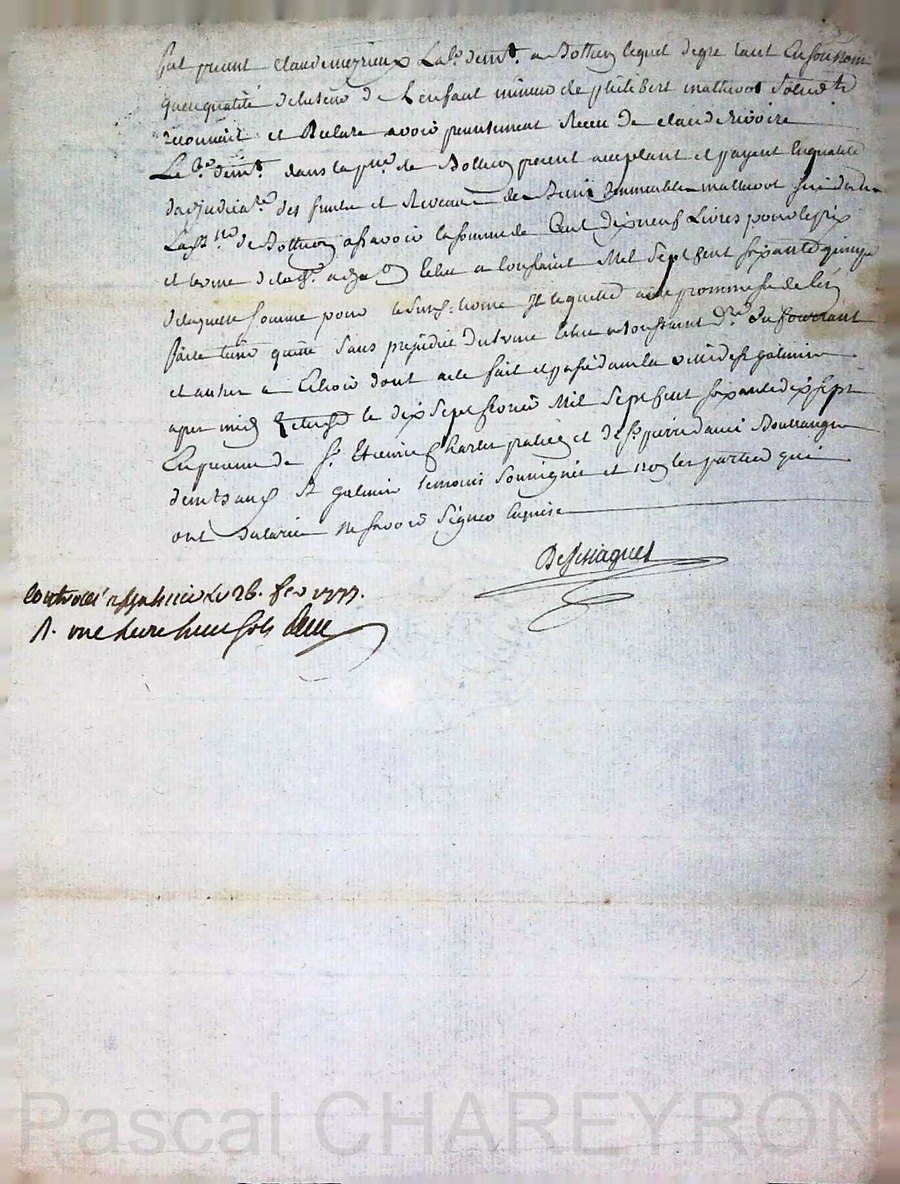 fut présent claude meyrieux Lab.r dem.t a Bothéon lequel degré tant En son nom
qu'en qualité de tuteur de L'enfant mineur de philibert mathevot
reconnoit et declare avoir presentement Receu de claude rivoire
Lab.r dem.t dans la p.sse de Bothéon present acceptant et payent En qualité
d'adjudicat.re des fruits et Revenus des Biens Immeubles mathevot
de Bothéon a scavoir la somme de Cent dix neuf Livres pour le prix
et terme de echu a toussaint Mil Sept Cent soixante quinze
de laquelle somme pour le susd. terme Il le quitte avec promesse de l'en
faire tenir quitte sans prejudice du terme echu a toussaint d.er du courant
et autres a Echoir dont acte fait et passé dans la ville de st galmier
apres midy le dix sept fevrier Mil Sept Cent soixante dix sept
En presence de s.r Etienne Charles et de s.r pierre Boullanger
dem.ts aud. St galmier temoins soussignés et non les parties qui
ont declaré ne scavoir signer Enquise
Dessiagnes
Controllé a st galmier le 26. fev 1777.
R. une livre huit sols
Pascal CHAREYRON